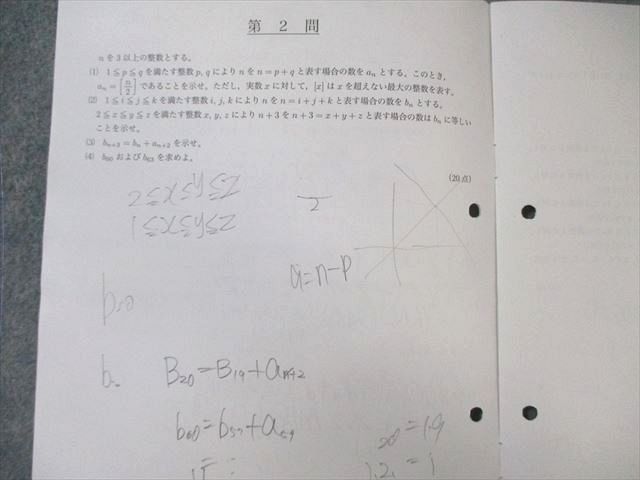 第 2 問
nを3以上の整数とする。
(1) 1≦p≦qを満たす整数p, qによりnをn=p+qと表す場合の数をaₙとする。このとき,
aₙ=[n/2]であることを示せ。ただし, 実数xに対して, [x]はxを超えない最大の整数を表す。
(2) 1≦i≦j≦kを満たす整数i, j, kによりnをn=i+j+kと表す場合の数をbₙとする。
2≦x≦y≦zを満たす整数x, y, zによりn+3をn+3=x+y+zと表す場合の数はbₙに等しい
ことを示せ。
(3) bₙ₊₃=bₙ+aₙ₊₂を示せ。
(4) b₆₀およびb₆₃を求めよ。
(20点)
2≦x≦y≦z
1≦x≦y≦z
2
q=n-p
b₆₀
b
B₂₀=B₁₉+aₙ₊₂
b₆₀=b₅₇+a₅₉